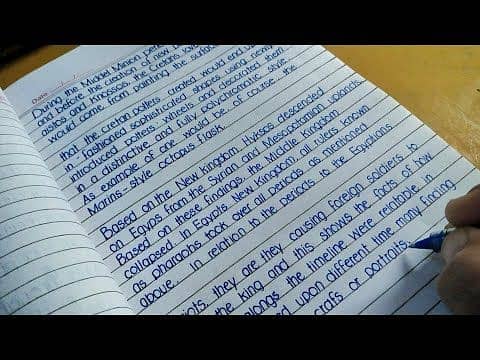 Date
During the Middel Minion peri
and before the creation of new
astos and Knossos, the Cretans
would come from painting the surface
that the cretan potters created would end up
in - fashioned sophisticated shapes using newly
introduced potters, wheels and decorated them
in a distinctive and fully polychromatic style
As example of one would be of course the
Marins - style octopus flask.
Based on the New Kingdom, Hyksos descended
on Egypt from the Syrian and Mesopotamian uplands.
Based on these findings, the Middle Kingdom
collapsed. In Egypts New Kingdom, all rulers known
as pharaohs took over all periods as mentioned
above in relation to the periods to the Egyptians
they are they causing foreign soldiers to
the king and this shows the facts of how
alongs the timeline were relatable in
upon different time many finding
crafs or portraits.